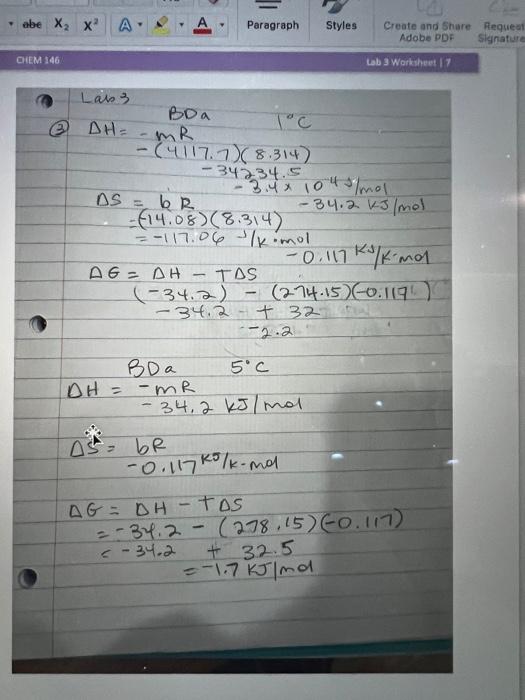 abe X₂ X² A A Paragraph Styles Create and Share Request
Adobe PDF Signature
CHEM 146 Lab 3 Worksheet | 7
Lab 3
BDa 1°C
③ ΔH = -mR
-(4117.7)(8.314)
-34234.5
-3.4 x 10⁴ J/mol
-34.2 kJ/mol
ΔS = bR
=(-14.08)(8.314)
= -117.06 J/k·mol
-0.117 KJ/K·mol
ΔG = ΔH - TΔS
(-34.2) - (274.15)(-0.117)
-34.2 + 32
-2.2
BDa 5°C
ΔH = -mR
-34.2 kJ/mol
ΔS = bR
-0.117 KJ/k-mol
ΔG = ΔH - TΔS
= -34.2 - (278.15)(-0.117)
= -34.2 + 32.5
= -1.7 KJ/mol